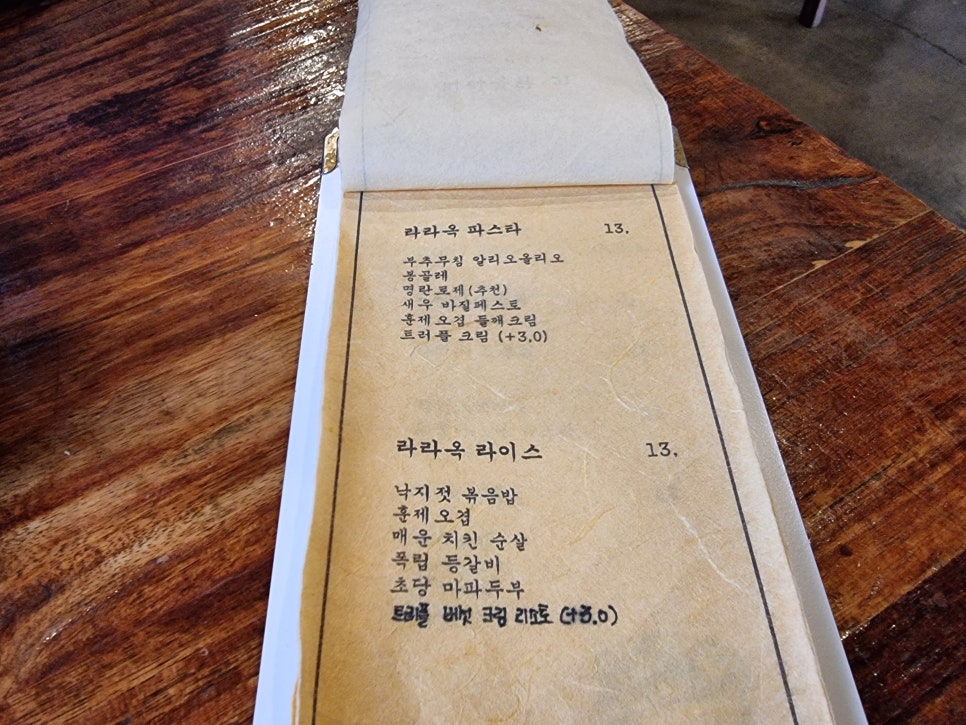 라라옥 파스타 13.
부추무침 알리오올리오
봉골레
명란로제(추천)
새우 바질페스토
훈제오겹 들깨크림
트러플 크림 (+3.0)
라라옥 라이스 13.
낙지젓 볶음밥
훈제오겹
매운 치킨 순살
폭립 등갈비
초당 마파두부
트러플 버섯 크림 리조또 (+3.0)